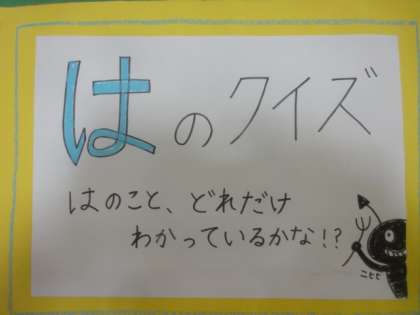 はのクイズ
はのこと、どれだけ
わかっているかな!?
ニヒヒ